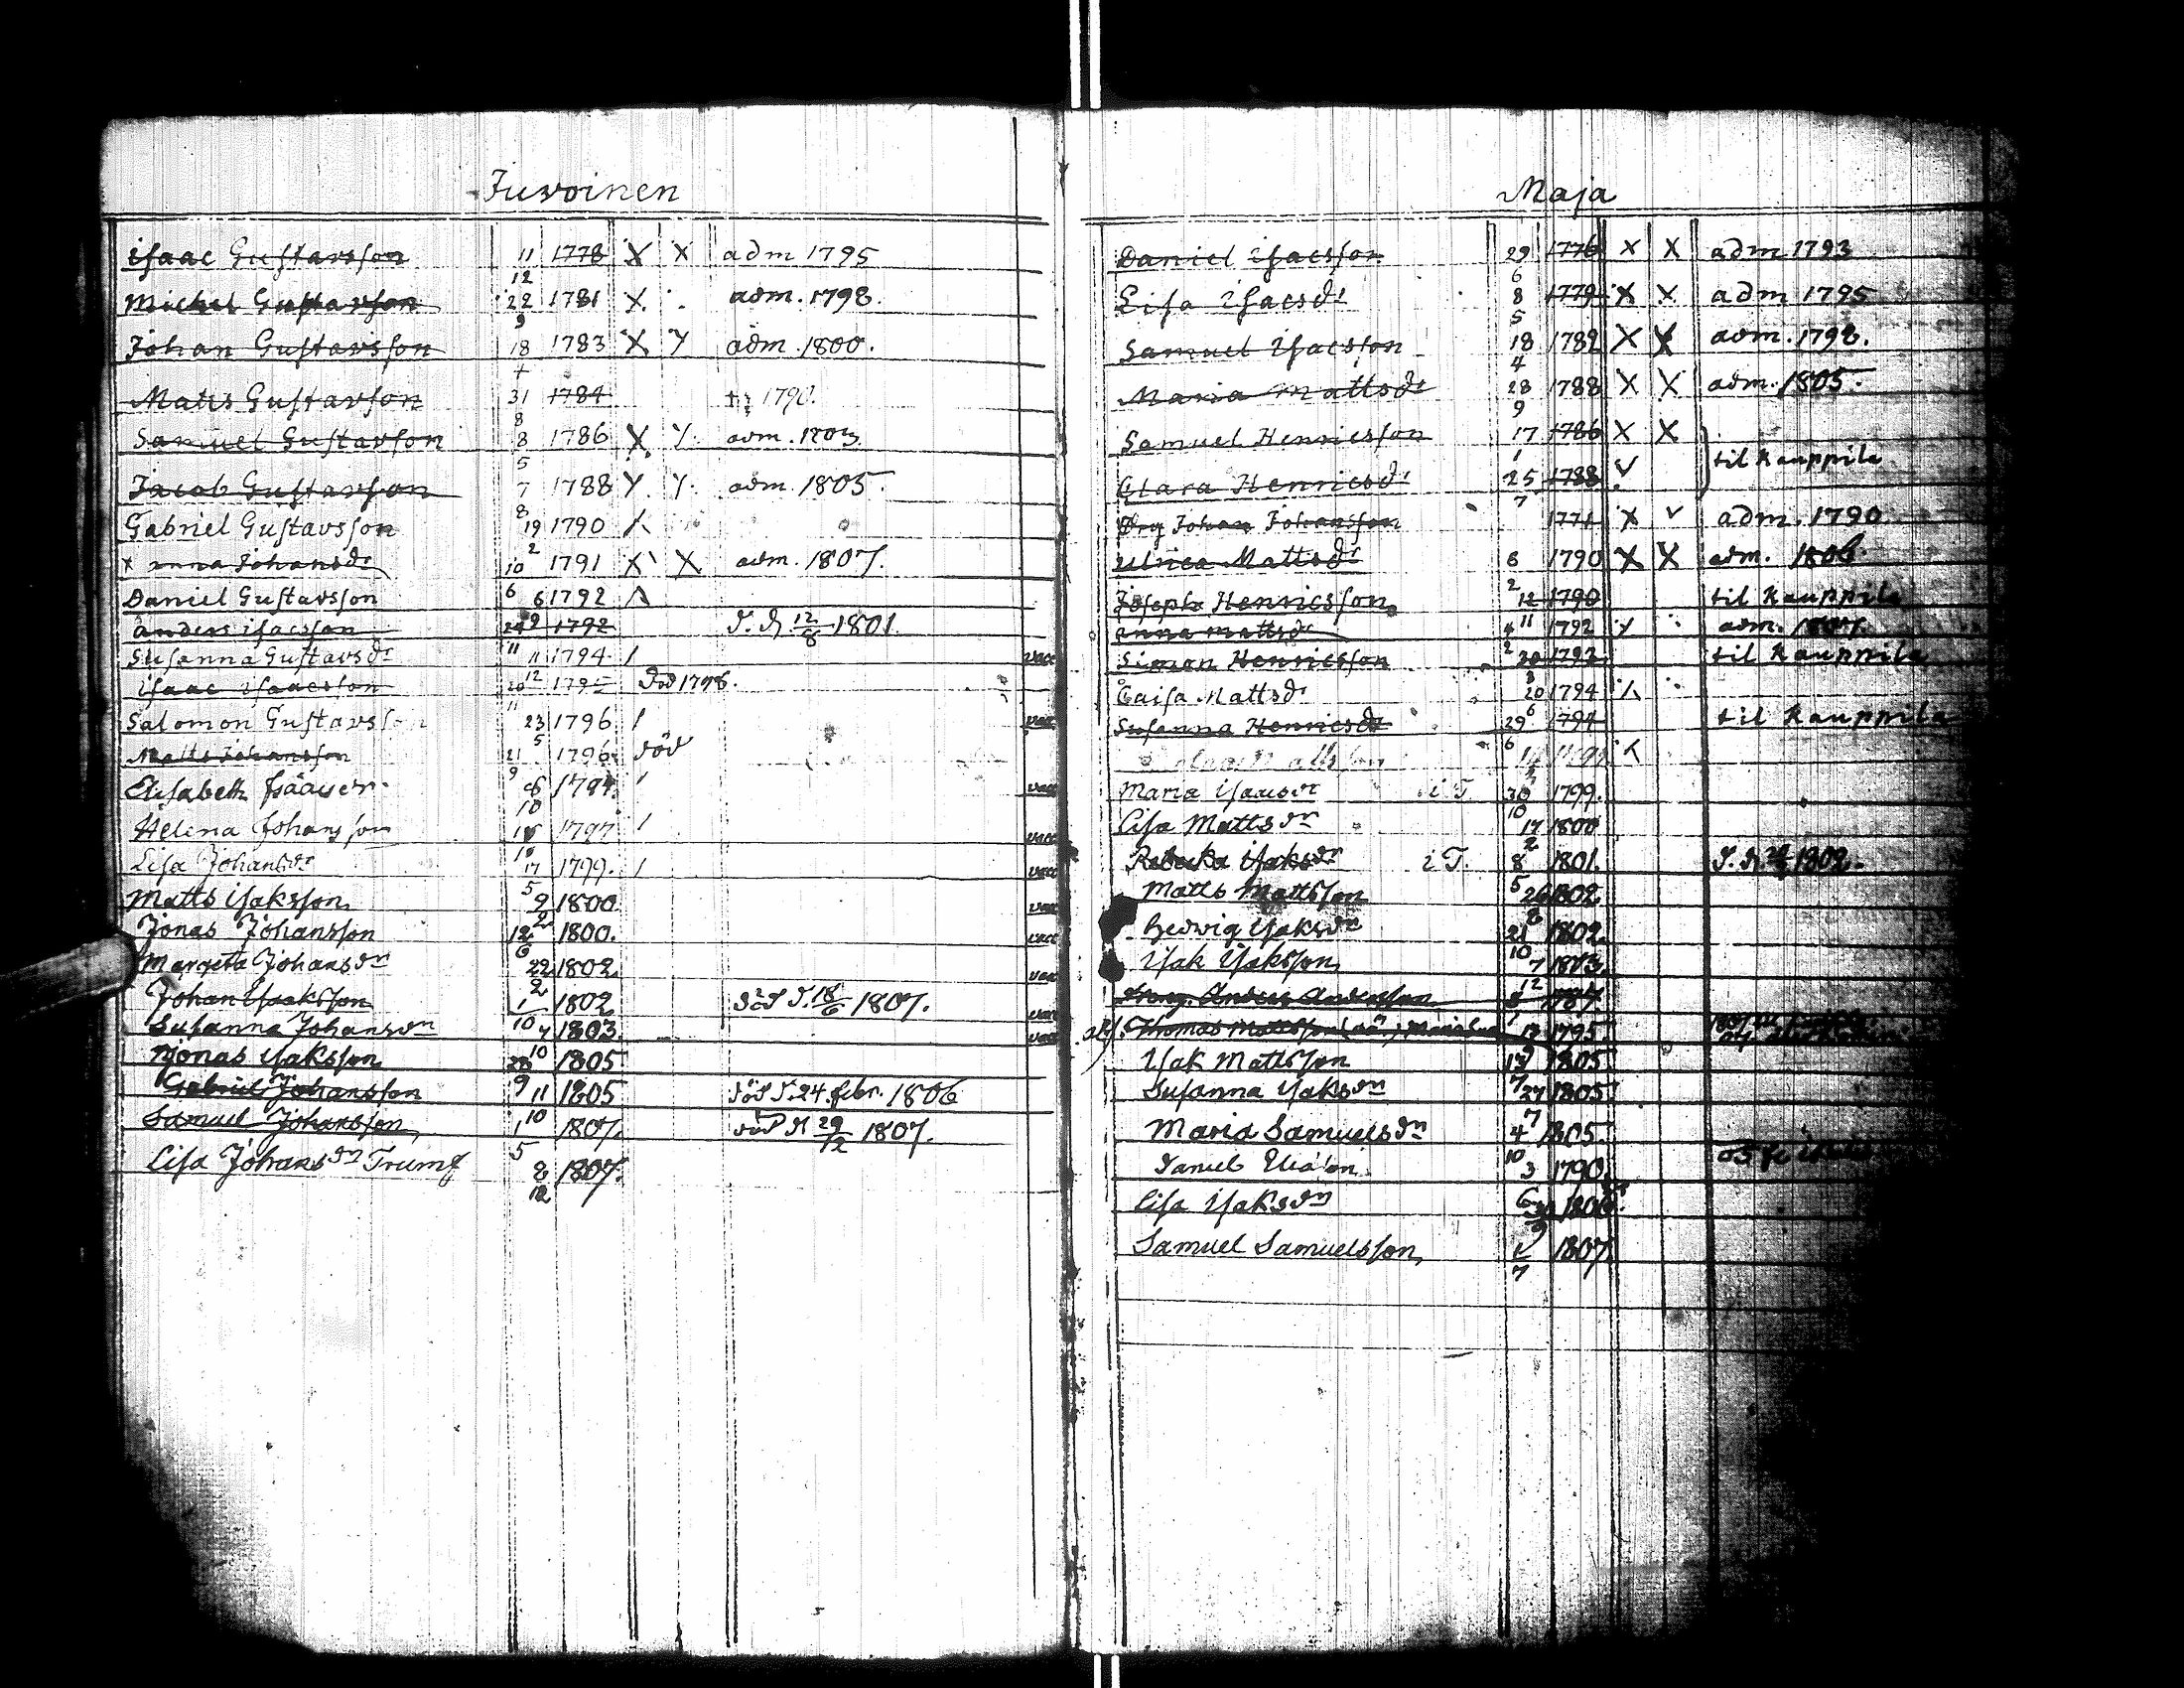 Juvoinen
isaac Gustavsson 11/12 1778 X X adm 1795
Michel Gustavsson 22/9 1781 X adm. 1798.
Johan Gustavsson 18/4 1783 X Y adm. 1800.
Matts Gustavson 31/8 1784 1790.
Samuel Gustavson 8/5 1786 X Y adm. 1803
Jacob Gustavsson 7/8 1788 Y Y adm. 1805.
Gabriel Gustavsson 19/2 1790
x anna Johansdr 10/6 1791 X X adm. 1807.
Daniel Gustavsson 6 1792
anders isacsson 1792 12/8 1801
Susanna Gustavsdr 11 1794 / vacc
isaac isaacsson 1795 död 1798.
Salomon Gustavsson 23/5 1796 / vacc
Matts Johansson 21/9 1796 död
Elisabeth 6/10 1797 / vacc
Helena Johansson 1797 / vacc
Lisa Johansdr 17/5 1799. / vacc
Matts isaksson 9/2 1800 vacc
Jonas Johansson 12/6 1800. vacc
Margeta Johansdr 22/2 1802. vacc
Johan isaaksson 1 1802 död d. 18/6 1807. vacc
Susanna Johansdn 1803. vacc
Jonas isaksson 28 1805
Gabriel Johansson 11 1805 död d. 24 febr. 1806
Samuel Johansson 1/5 1807. död d 29/12 1807.
Lisa Johansdn Trumf 8/12 1807.
Maja
Daniel isacsson 29/6 1776 X X adm 1793
Lisa isacsdr 8/5 1779 X X adm 1795
Samuel isacsson 18/4 1782 X X adm. 1798.
Maria Mattsdr 28/9 1788 X X adm. 1805.
Samuel Henricsson 17/1 1786 X X
Clara Henricsdr 25/7 1788 til Kauppila
Drg Johan Johansson 1771 X adm. 1790
Ulrica Mattsdr 8/2 1790 X X adm. 1806.
Joseph Henricsson 12 1790 til Kauppila
anna mattsdr 1792 adm. 1807.
Simon Henricsson 20 1792 til Kauppila
Caisa Mattsdr 20 1794
Susanna Henricsdr 29/6 1794 til Kauppila
Maria isaacsdr i T. 30/10 1799.
Lisa Mattsdr 17/2 1800
Rebecka isaksdr i T. 8/5 1801. 1802.
Matts Mattsson 26 1802
Hedwig isaksdr 21/10 1802.
isak isaksson 7/12 1803
Anders Andersson 1787.
Thomas Mattsson 1795.
isak Mattsson 1805
Susanna isaksdn 27 1805
Maria Samuelsdn 4/10 1805.
3 1790
Lisa isaksdn 1806.
Samuel Samuelsson 1/7 1807.